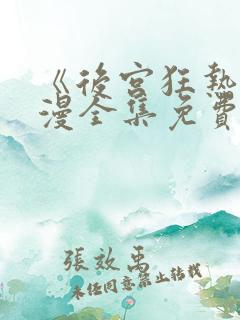 《後宮狂熱
漫全集免費
張效禹
未任同意禁止轉載